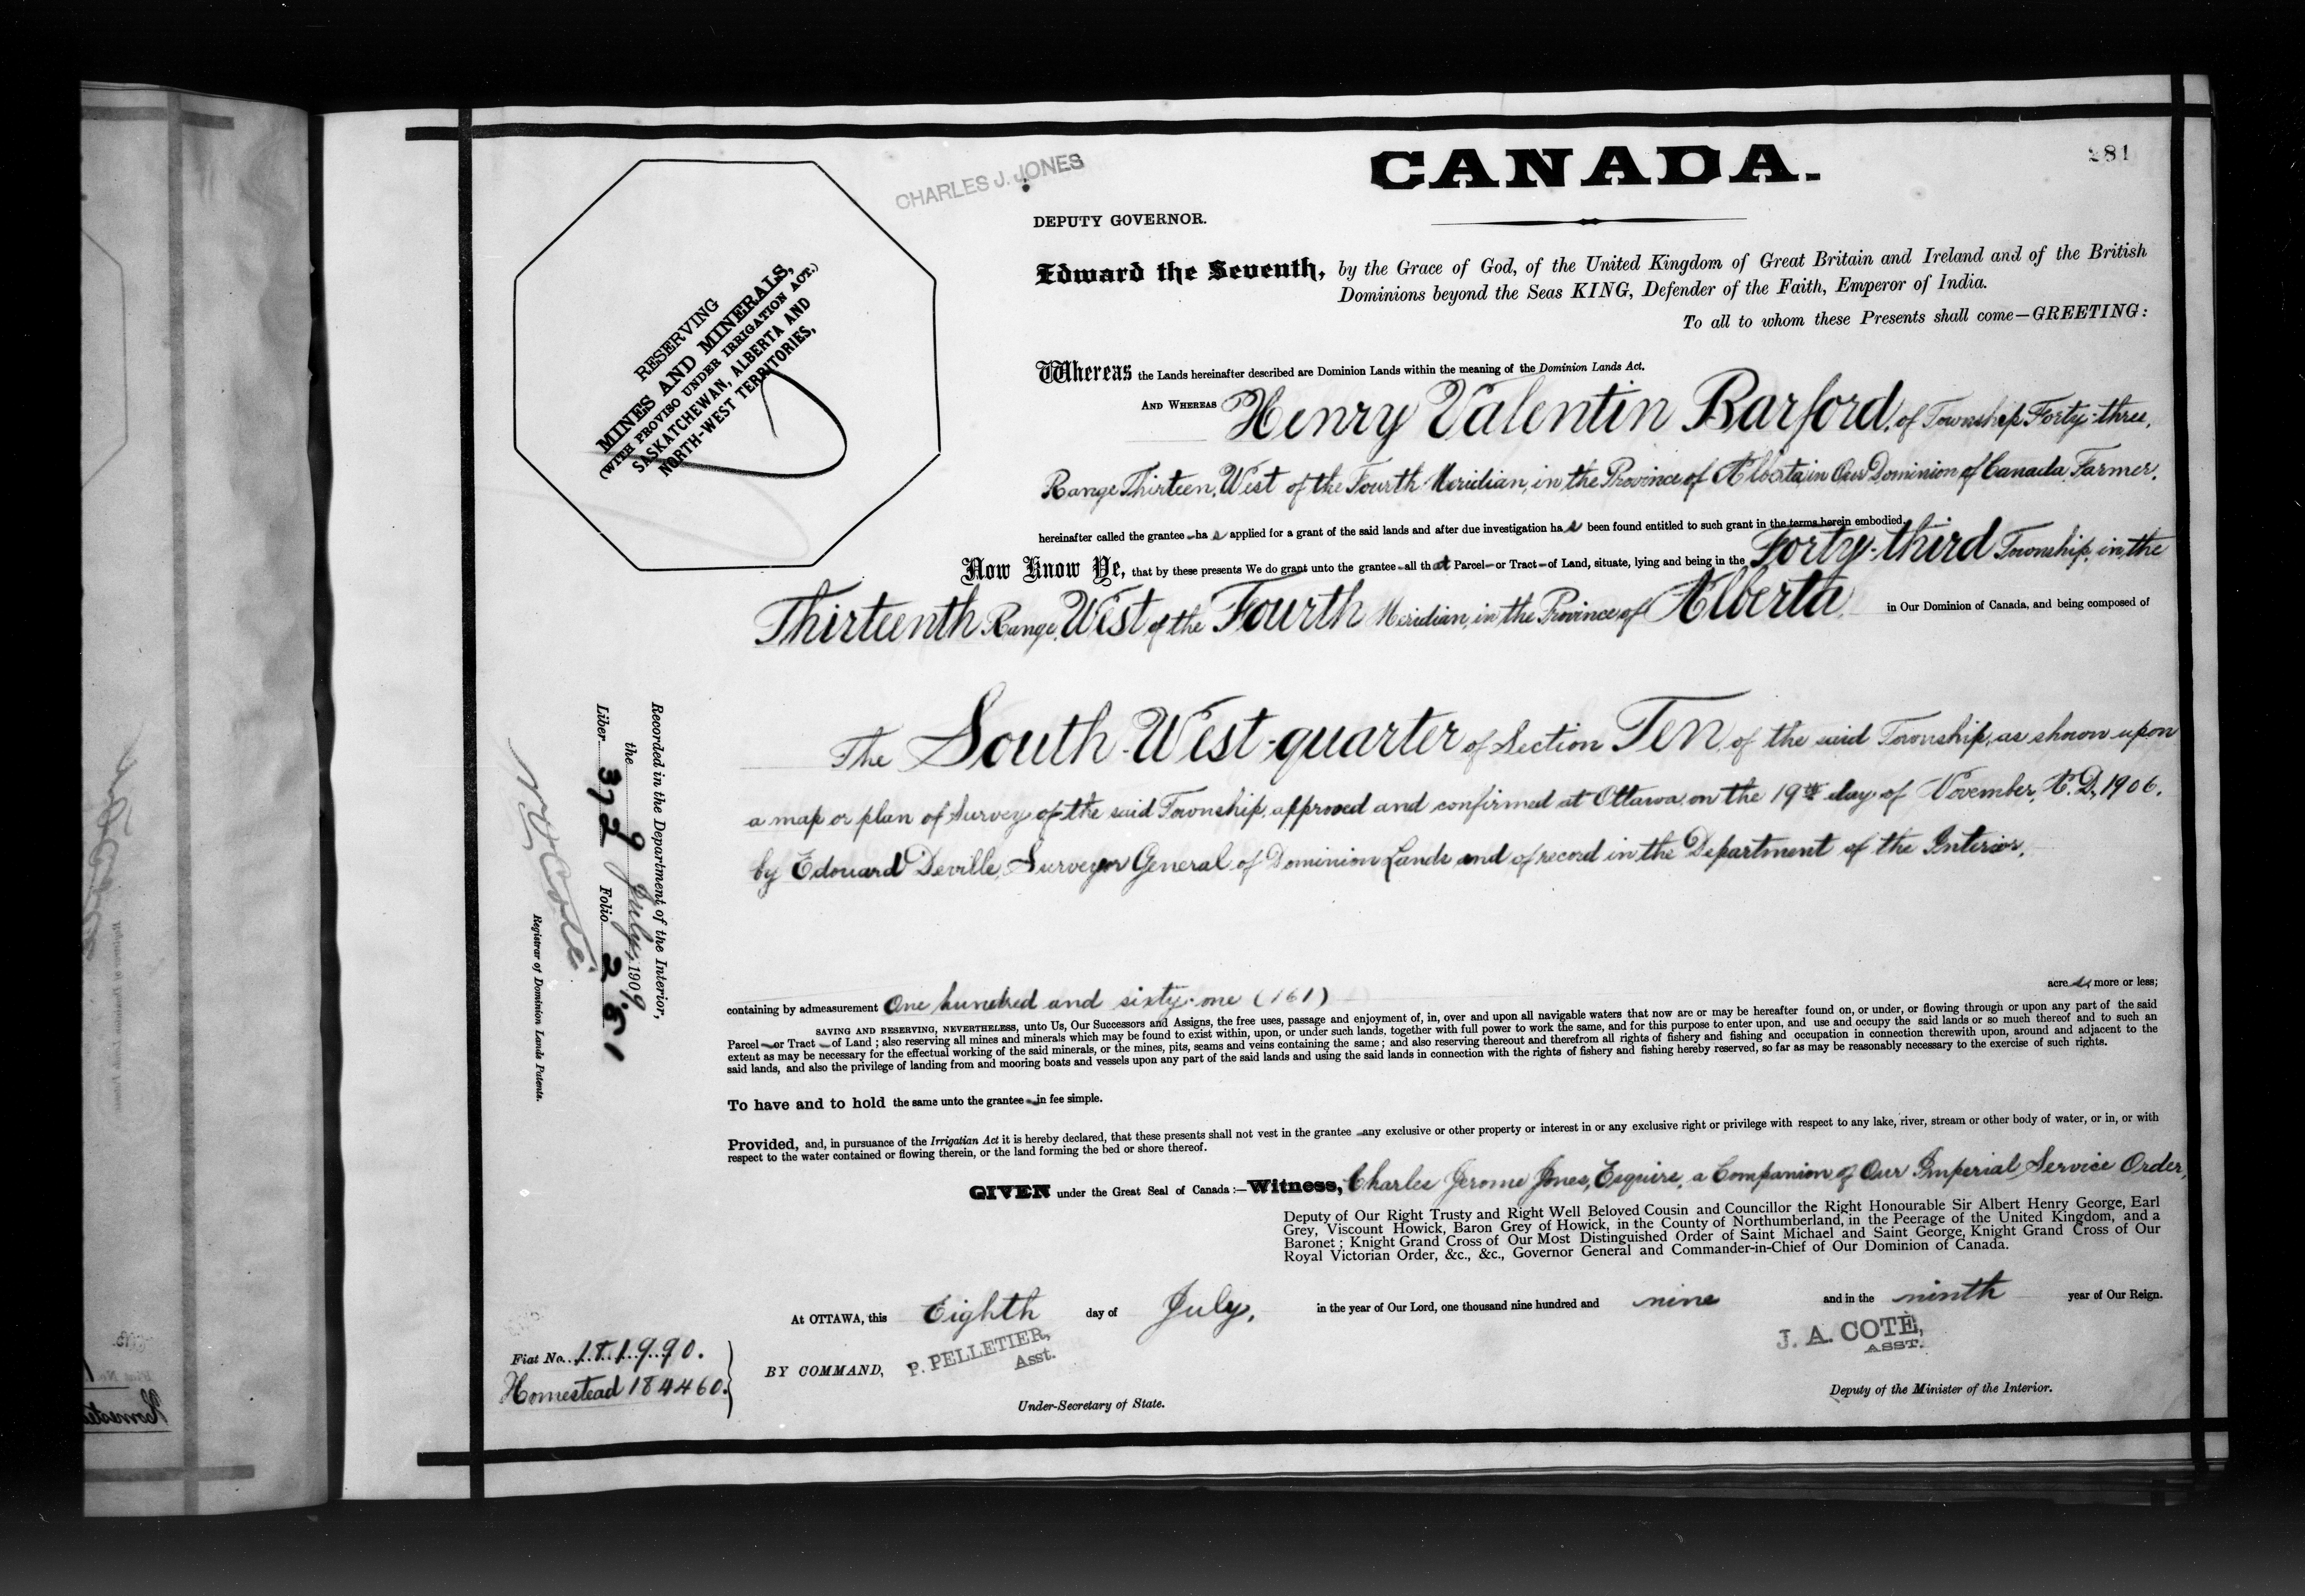 281
CANADA.
CHARLES J. JONES
DEPUTY GOVERNOR.
RESERVING
MINES AND MINERALS,
(WITH PROVISO UNDER IRRIGATION ACT.)
SASKATCHEWAN, ALBERTA AND
NORTH-WEST TERRITORIES,
Edward the Seventh, by the Grace of God, of the United Kingdom of Great Britain and Ireland and of the British
Dominions beyond the Seas KING, Defender of the Faith, Emperor of India.
To all to whom these Presents shall come—GREETING:
Whereas the Lands hereinafter described are Dominion Lands within the meaning of the Dominion Lands Act.
AND WHEREAS Henry Valentin Barford, of Township Forty-three,
Range Thirteen, West of the Fourth Meridian, in the Province of Alberta, in Our Dominion of Canada, Farmer,
hereinafter called the grantee has applied for a grant of the said lands and after due investigation has been found entitled to such grant in the terms herein embodied.
Now Know Ye, that by these presents We do grant unto the grantee all that Parcel or Tract of Land, situate, lying and being in the Forty-third Township, in the
Thirteenth Range, West of the Fourth Meridian, in the Province of Alberta, in Our Dominion of Canada, and being composed of
The South-West-quarter of Section Ten, of the said Township, as shown upon
a map or plan of Survey of the said Township, approved and confirmed at Ottawa on the 19th day of November, A.D. 1906,
by Edouard Deville, Surveyor General of Dominion Lands and of record in the Department of the Interior,
Recorded in the Department of the Interior,
the 9 July, 1909
Liber 372 Folio 281
N O Coté
Registrar of Dominion Lands Patents.
containing by admeasurement One hundred and sixty-one (161) acres, more or less;
SAVING AND RESERVING, NEVERTHELESS, unto Us, Our Successors and Assigns, the free uses, passage and enjoyment of, in, over and upon all navigable waters that now are or may be hereafter found on, or under, or flowing through or upon any part of the said
Parcel or Tract of Land; also reserving all mines and minerals which may be found to exist within, upon, or under such lands, together with full power to work the same, and for this purpose to enter upon, and use and occupy the said lands or so much thereof and to such an
extent as may be necessary for the effectual working of the said minerals, or the mines, pits, seams and veins containing the same; and also reserving thereout and therefrom all rights of fishery and fishing and occupation in connection therewith upon, around and adjacent to the
said lands, and also the privilege of landing from and mooring boats and vessels upon any part of the said lands and using the said lands in connection with the rights of fishery and fishing hereby reserved, so far as may be reasonably necessary to the exercise of such rights.
To have and to hold the same unto the grantee in fee simple.
Provided, and, in pursuance of the Irrigatian Act it is hereby declared, that these presents shall not vest in the grantee any exclusive or other property or interest in or any exclusive right or privilege with respect to any lake, river, stream or other body of water, or in, or with
respect to the water contained or flowing therein, or the land forming the bed or shore thereof.
GIVEN under the Great Seal of Canada:—Witness, Charles Jerome Jones, Esquire, a Companion of Our Imperial Service Order,
Deputy of Our Right Trusty and Right Well Beloved Cousin and Councillor the Right Honourable Sir Albert Henry George, Earl
Grey, Viscount Howick, Baron Grey of Howick, in the County of Northumberland, in the Peerage of the United Kingdom, and a
Baronet; Knight Grand Cross of Our Most Distinguished Order of Saint Michael and Saint George, Knight Grand Cross of Our
Royal Victorian Order, &c., &c., Governor General and Commander-in-Chief of Our Dominion of Canada.
At OTTAWA, this Eighth day of July, in the year of Our Lord, one thousand nine hundred and nine and in the ninth year of Our Reign.
Fiat No. 181990.
Homestead 184460.
BY COMMAND, P. PELLETIER,
Asst.
Under-Secretary of State.
J. A. COTÉ,
ASST.
Deputy of the Minister of the Interior.